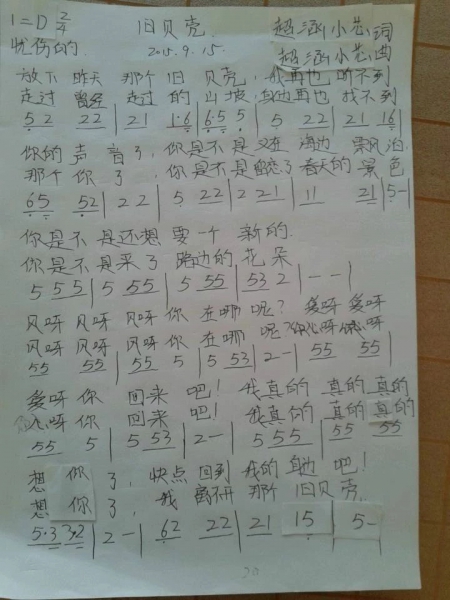 1=D 2/4 旧贝壳 超涵小芯词
忧伤的 2015.9.15 超涵小芯曲
放下 昨天 那个 旧 贝壳,我再也 听不到
走过 曾经 走过 的 山坡,身边再也 找不到
52 22 | 21 1·6 | 6·5 5 | 5 22 | 21 16 |
你的 声 音了,你是不是 又在 海边 乘风泊
那个 你 了,你是不是 留恋了 春天的 景色
65 52 | 2 2 | 5 22 | 2 21 | 11 21 | 5- |
你是 不 是还想 要一个 新的
你是 不 是采了 路边的 花朵
5 55 | 5 55 | 5 55 | 53 2 | - - |
风呀 风呀 风呀 你 在哪 呢?爱呀 爱呀
风呀 风呀 风呀 你 在哪 呢?
55 55 | 55 5 | 5 53 | 2- | 55 55 |
爱呀 你 回来 吧!我真的 真的 真的
心呀 你 回来 吧!我真的 真的 真的
55 5 | 5 53 | 2- | 5 55 | 55 55
想 你 了,快点 回到 我的 身边 吧!
想 你 了,我 离不开 那个 旧贝壳
5·3 3·2 | 2 - | 62 22 | 21 15 | 5-